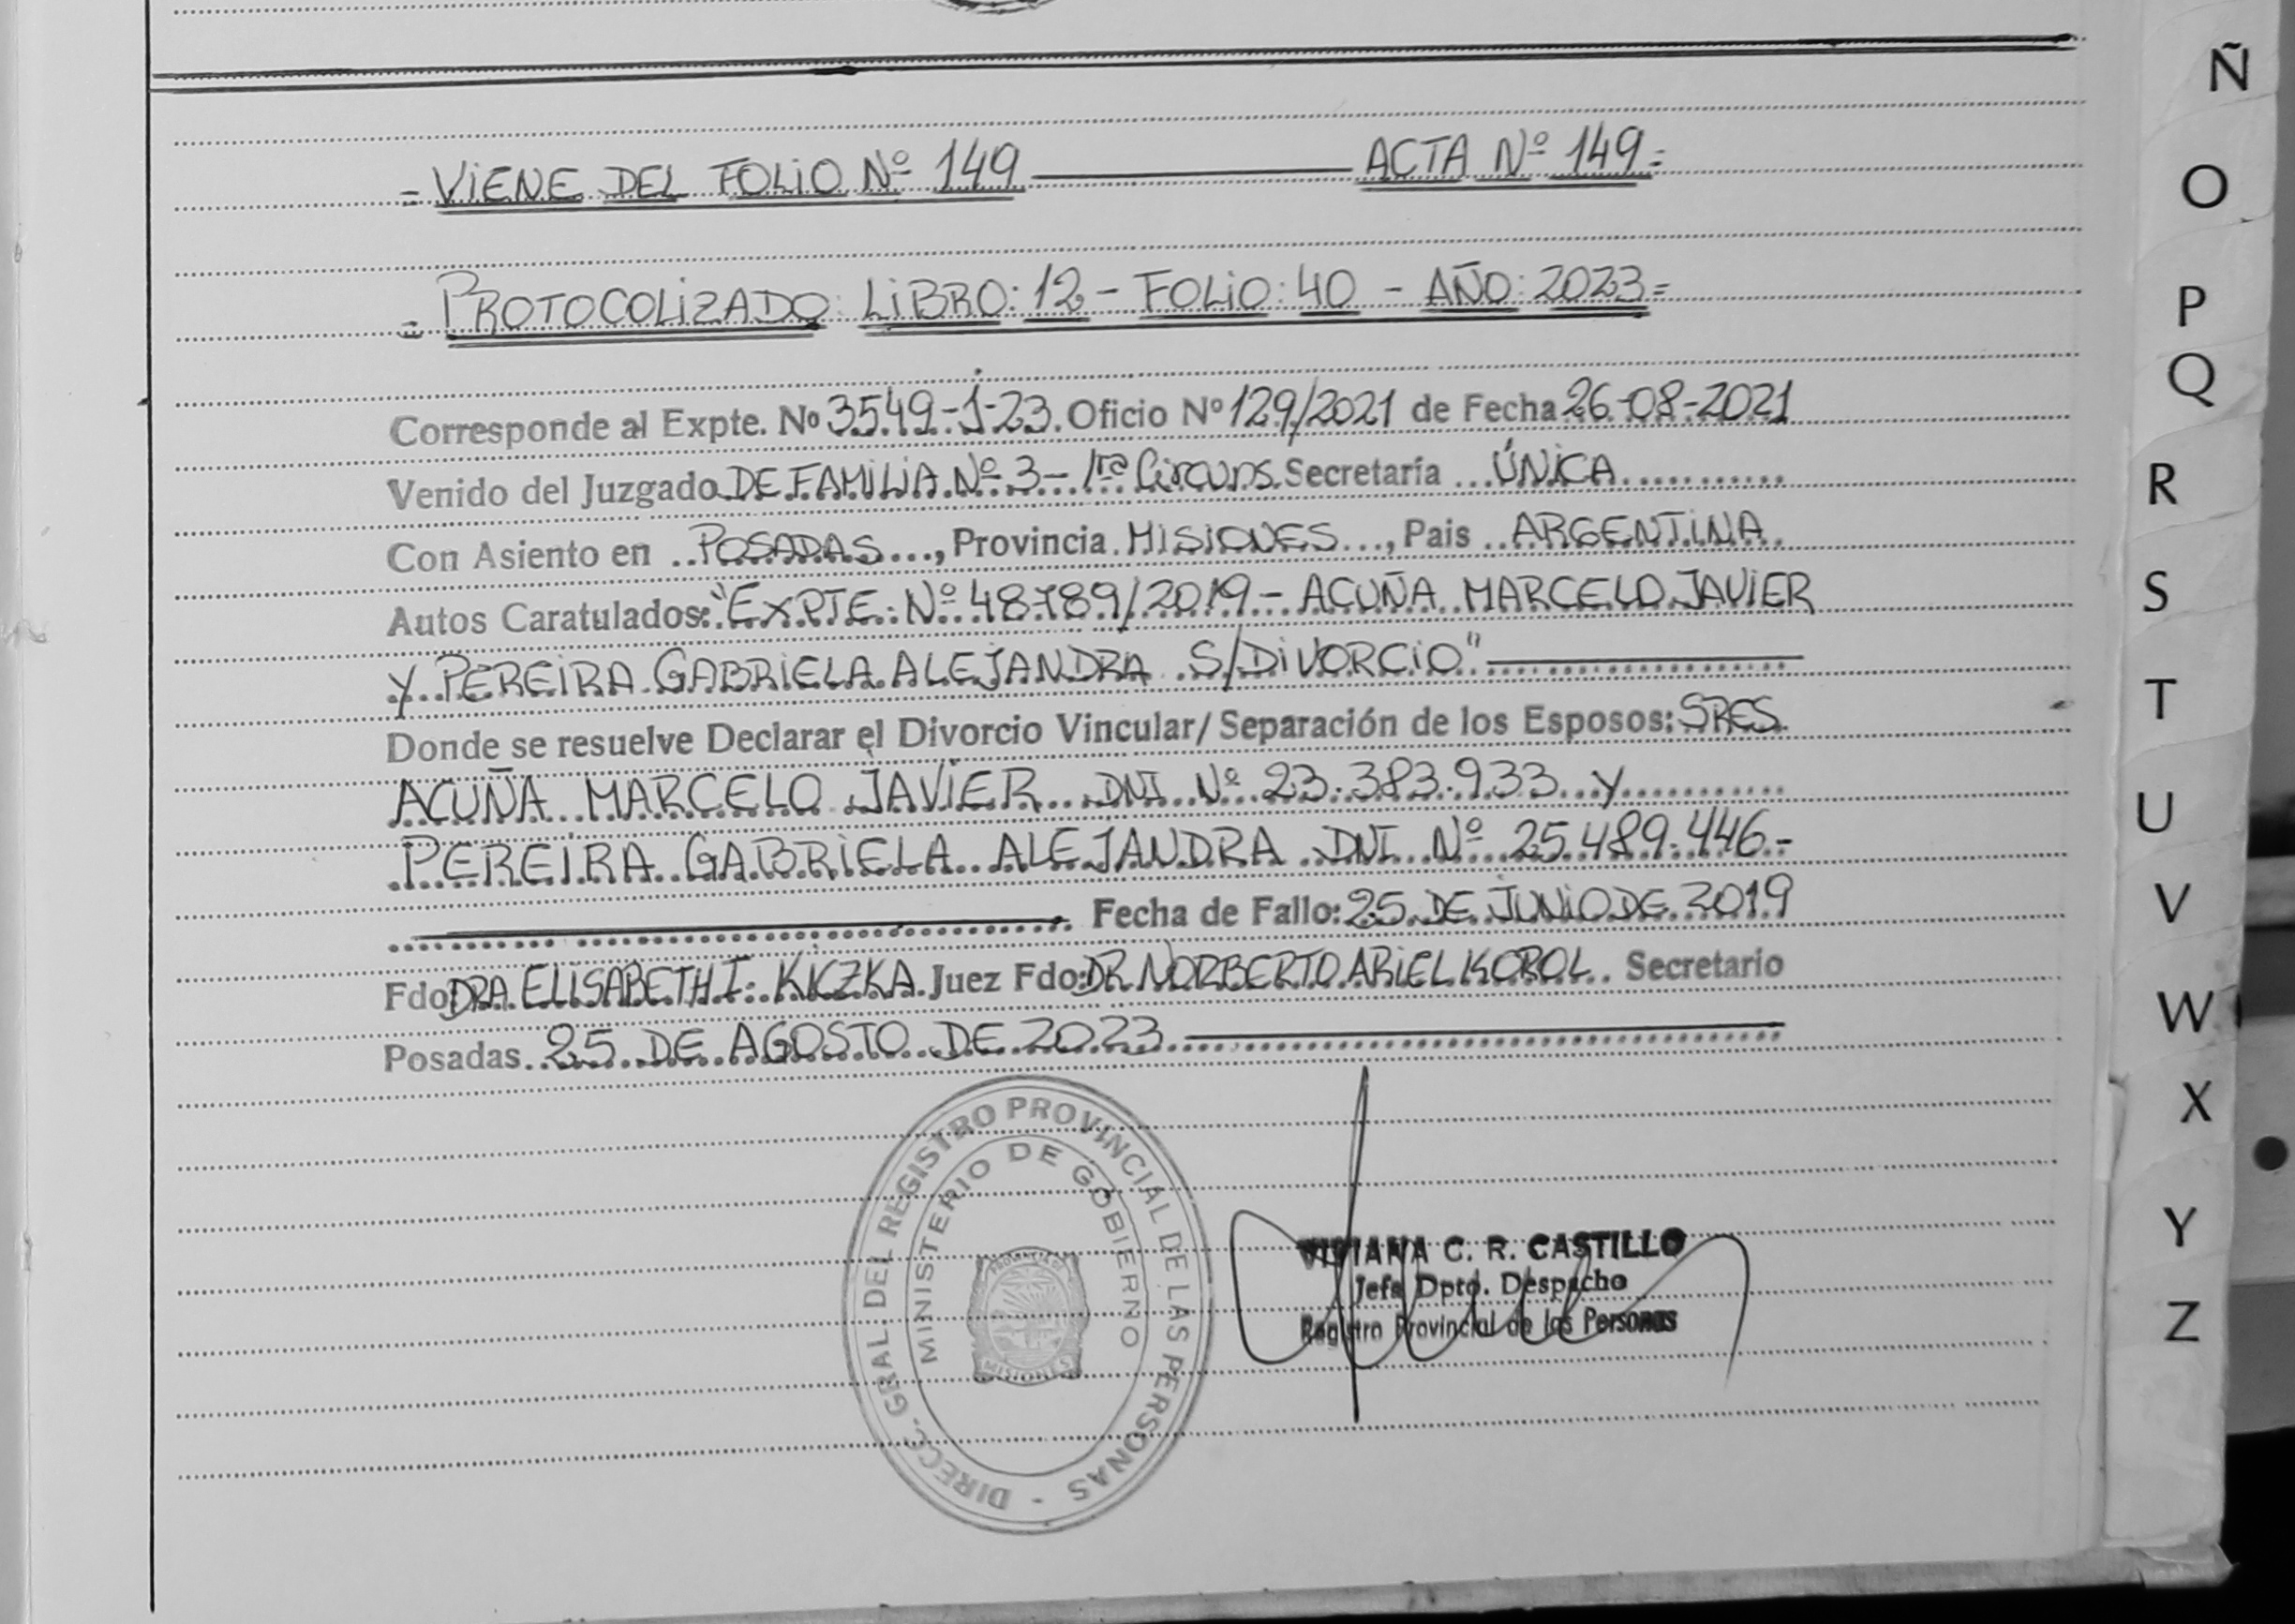 = VIENE DEL FOLIO Nº 149 ACTA Nº 149=
= PROTOCOLIZADO: LIBRO: 12 - FOLIO: 40 - AÑO: 2023=
Corresponde al Expte. Nº 3549-J-23. Oficio Nº 129/2021 de Fecha 26-08-2021
Venido del Juzgado DE FAMILIA Nº 3 - 1ra Circuns. Secretaría ÚNICA
Con Asiento en POSADAS, Provincia MISIONES, Pais ARGENTINA
Autos Caratulados: "EXPTE. Nº 48789/2019 - ACUÑA MARCELO JAVIER
Y PEREIRA GABRIELA ALEJANDRA S/DIVORCIO"
Donde se resuelve Declarar el Divorcio Vincular/ Separación de los Esposos: SRES.
ACUÑA MARCELO JAVIER DNI Nº 23.383.933 y
PEREIRA GABRIELA ALEJANDRA DNI Nº 25.489.446.-
Fecha de Fallo: 25 DE JUNIO DE 2019
Fdo DRA. ELISABETH I. KICZKA Juez Fdo: DR NORBERTO ARIEL KOROL. Secretario
Posadas 25 DE AGOSTO DE 2023
DIRECC. GRAL. DEL REGISTRO PROVINCIAL DE LAS PERSONAS -
MINISTERIO DE GOBIERNO
MISIONES
VIVIANA C. R. CASTILLO
Jefa Dpto. Despacho
Registro Provincial de las Personas
Ñ
O
P
Q
R
S
T
U
V
W
X
Y
Z